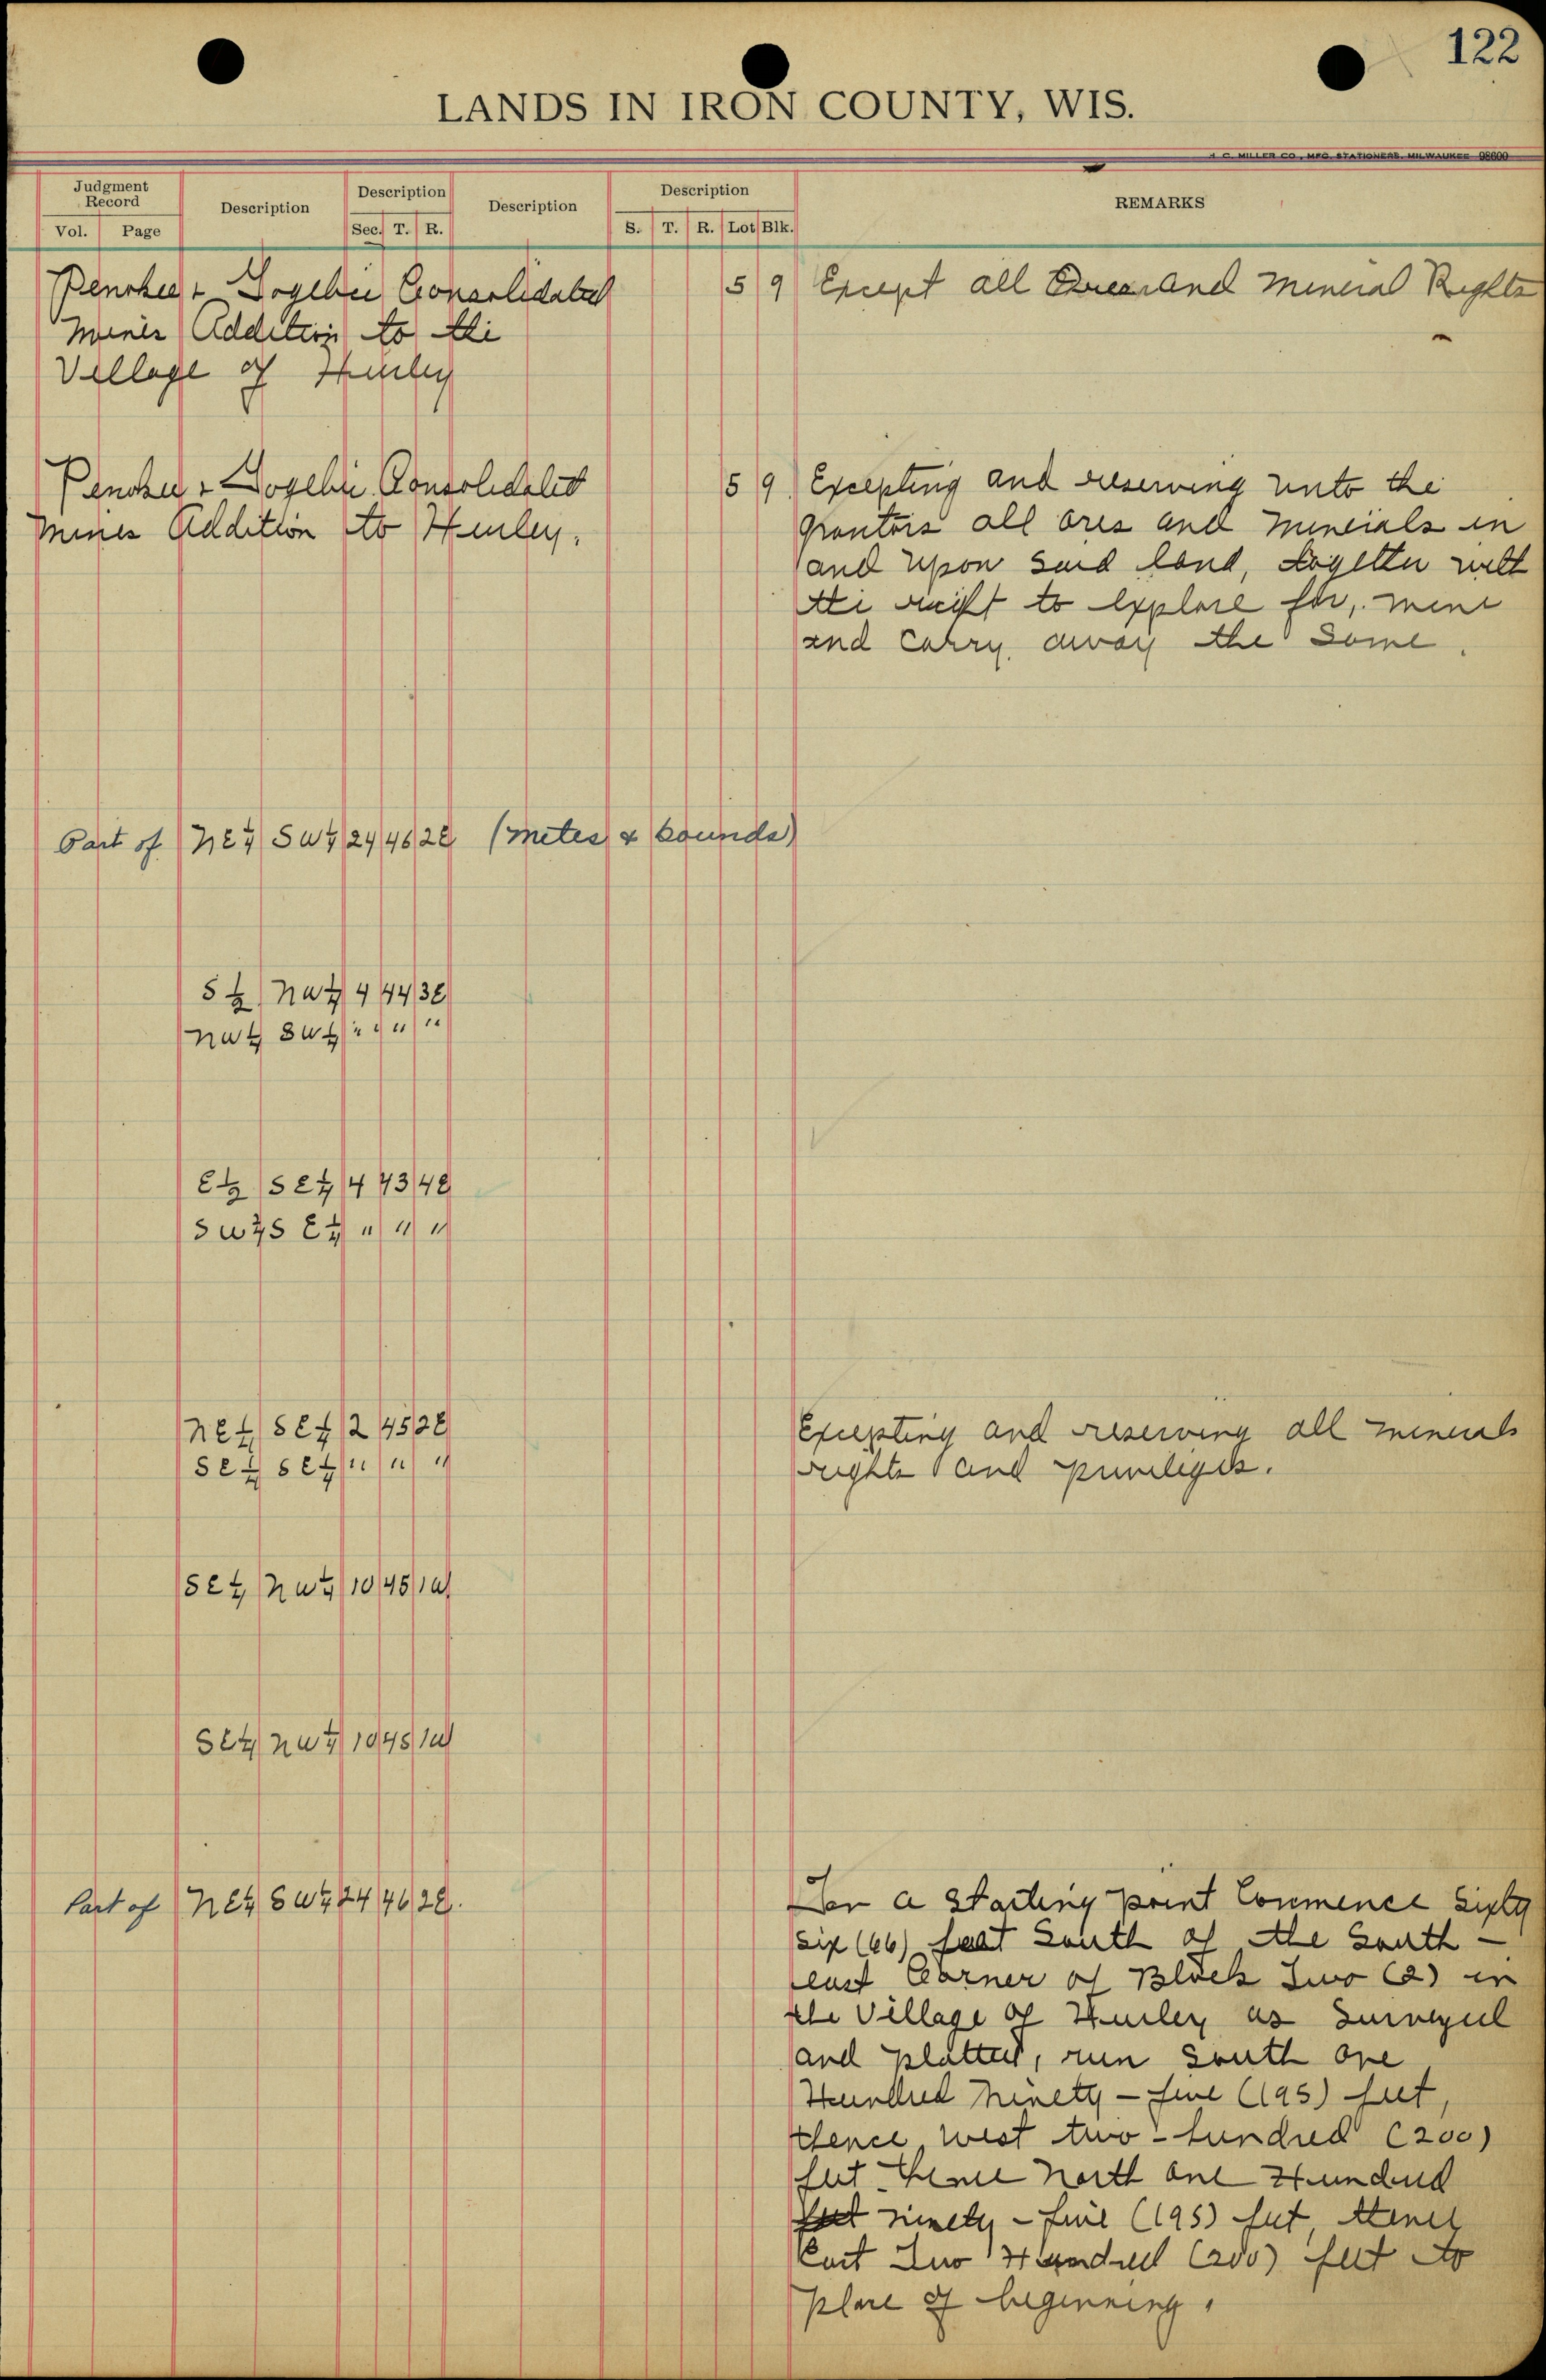 122
LANDS IN IRON COUNTY, WIS.
H. C. MILLER CO., MFG. STATIONERS, MILWAUKEE 98600
Judgment Record Description Description Description Description REMARKS
Vol. Page Sec. T. R. S. T. R. Lot Blk.
Penokee & Gogebic Consolidated 5 9 Except all Ores and Mineral Rights
Mines Addition to the
Village of Hurley
Penokee & Gogebic Consolidated 5 9 Excepting and reserving unto the
Mines Addition to Hurley. grantors all ores and minerals in
and upon said land, together with
the right to explore for, mine
and carry away the same.
Part of NE¼ SW¼ 24 46 2E (metes & bounds)
S½ NW¼ 4 44 3E
NW¼ SW¼ " " " "
E½ SE¼ 4 43 4E
SW¼ SE¼ " " "
NE¼ SE¼ 2 45 2E Excepting and reserving all minerals
SE¼ SE¼ " " " rights and privileges.
SE¼ NW¼ 10 45 1W
SE¼ NW¼ 10 45 1W
Part of NE¼ SW¼ 24 46 2E. For a starting point Commence Sixty
six (66) feet South of the South-
east Corner of Block Two (2) in
the Village of Hurley as Surveyed
and platted, run South one
Hundred Ninety-five (195) feet,
thence west two-hundred (200)
feet thence North one Hundred
feet ninety-five (195) feet, thence
East Two Hundred (200) feet to
place of beginning.